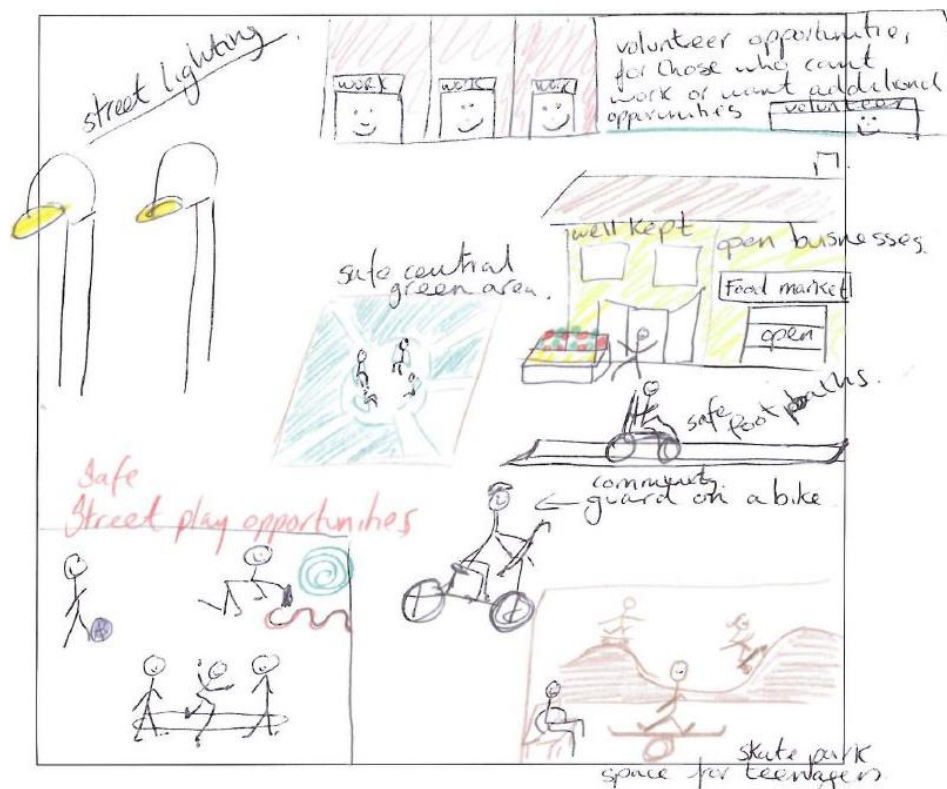 street lighting.
work work work
volunteer opportunities,
for those who can't
work or want additional
opportunities
volunteer
well kept
open businesses,
Food market
open
safe central
green area.
safe foot paths.
community
guard on a bike
Safe
Street play opportunities
skate park
space for teenagers